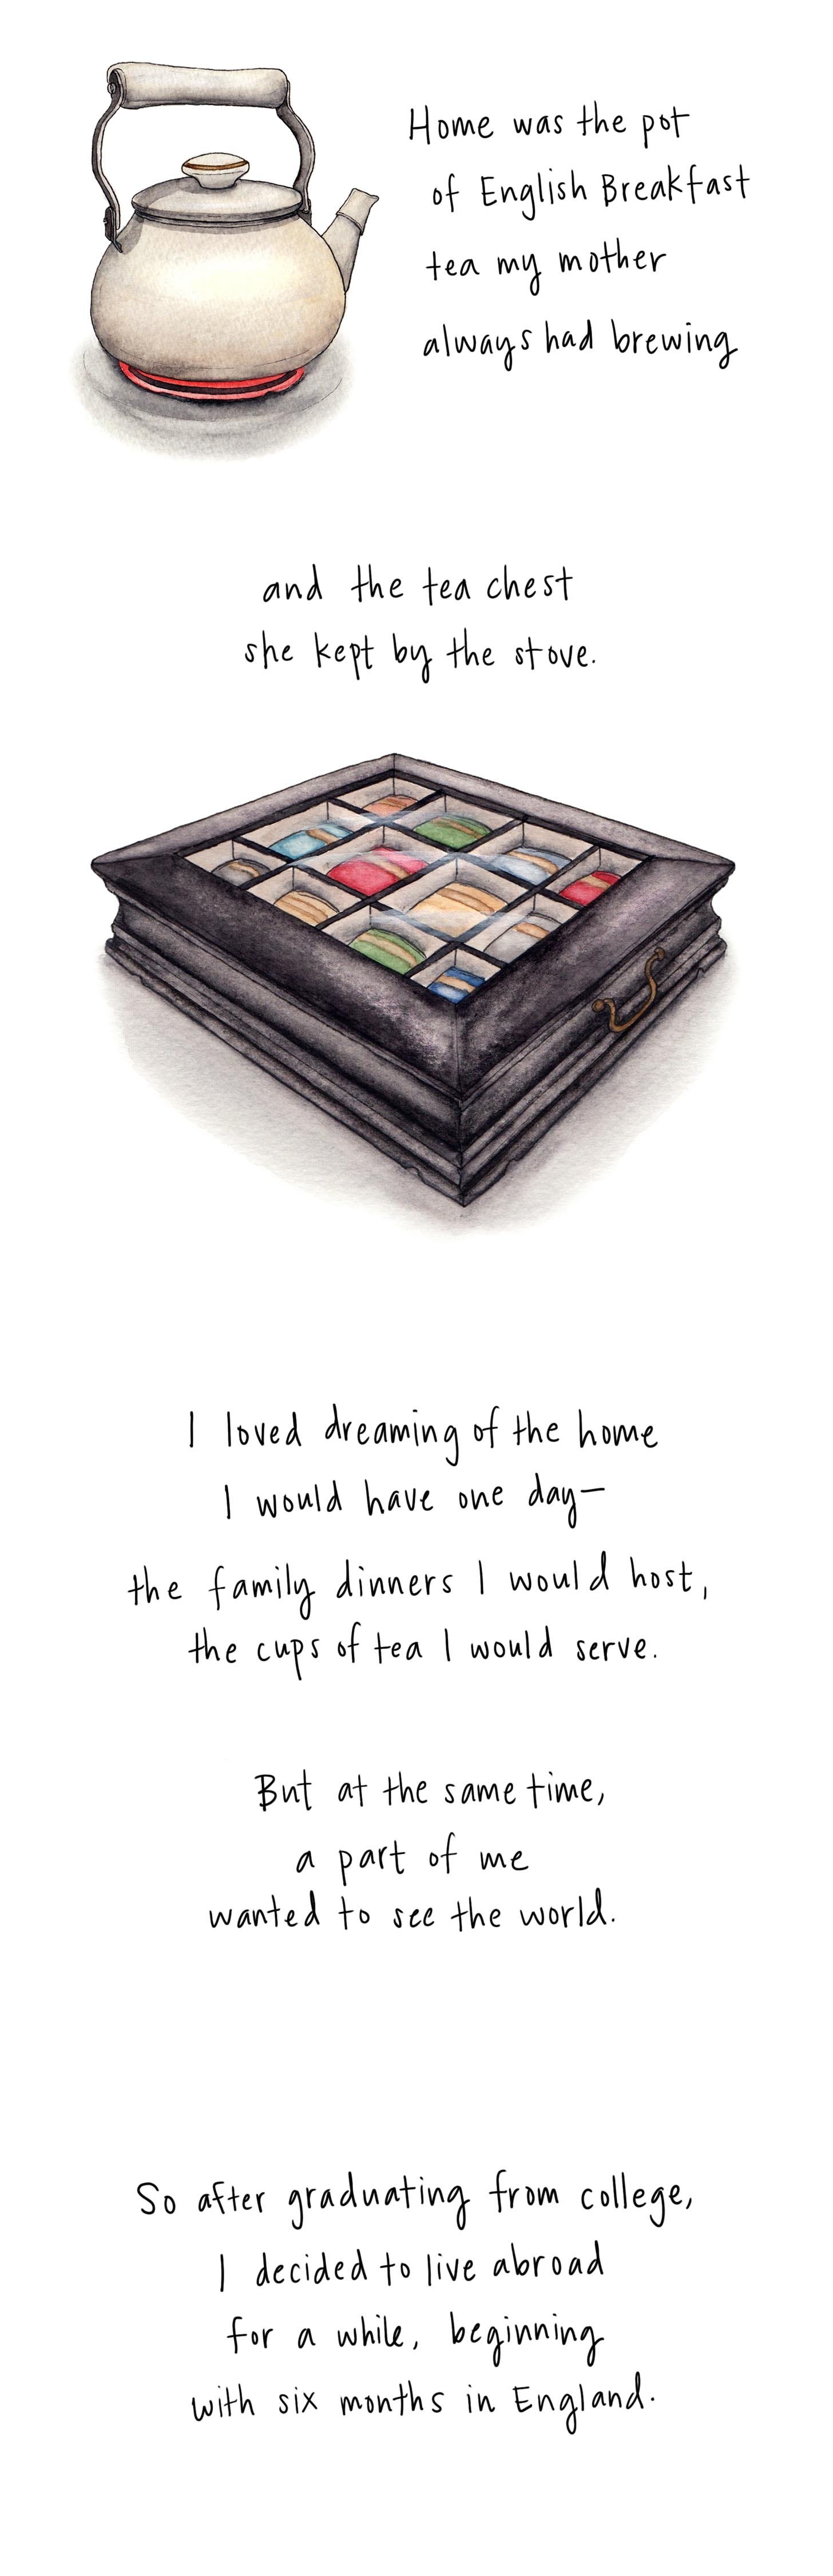 Home was the pot
of English Breakfast
tea my mother
always had brewing
and the tea chest
she kept by the stove.
I loved dreaming of the home
I would have one day—
the family dinners I would host,
the cups of tea I would serve.
But at the same time,
a part of me
wanted to see the world.
So after graduating from college,
I decided to live abroad
for a while, beginning
with six months in England.